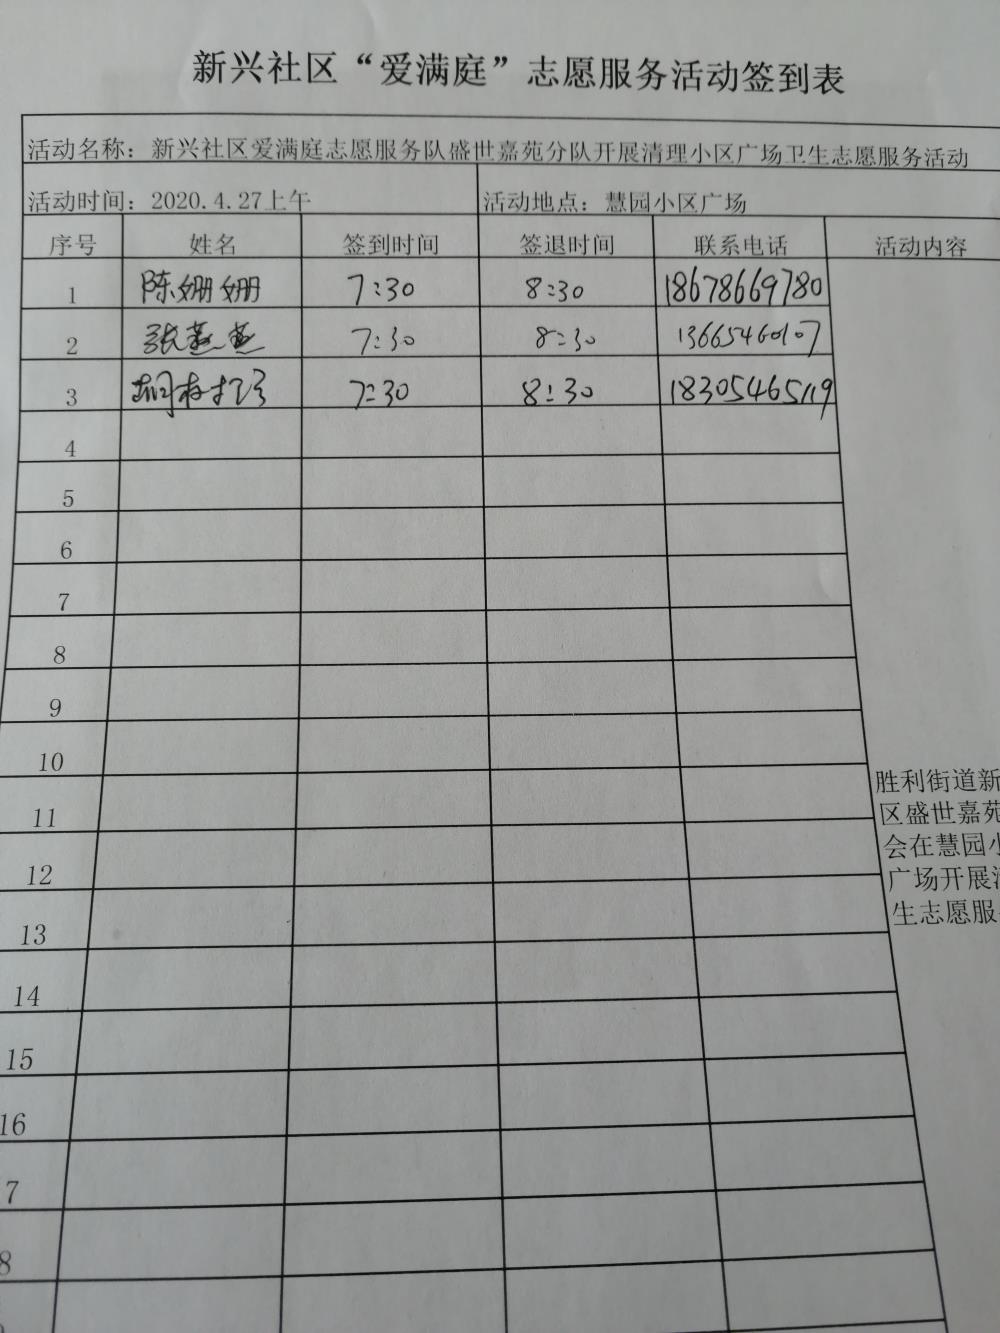 新兴社区“爱满庭”志愿服务活动签到表
活动名称：新兴社区爱满庭志愿服务队盛世嘉苑分队开展清理小区广场卫生志愿服务活动
活动时间：2020.4.27上午 活动地点：慧园小区广场
序号 姓名 签到时间 签退时间 联系电话 活动内容
1 陈姗姗 7:30 8:30 18678669780
2 张燕燕 7:30 8:30 13665460107
3 7:30 8:30 18305465119
4
5
6
7
8
9
10
11
12
13
14
15
16
7
8
胜利街道新
区盛世嘉苑
会在慧园小
广场开展清
生志愿服